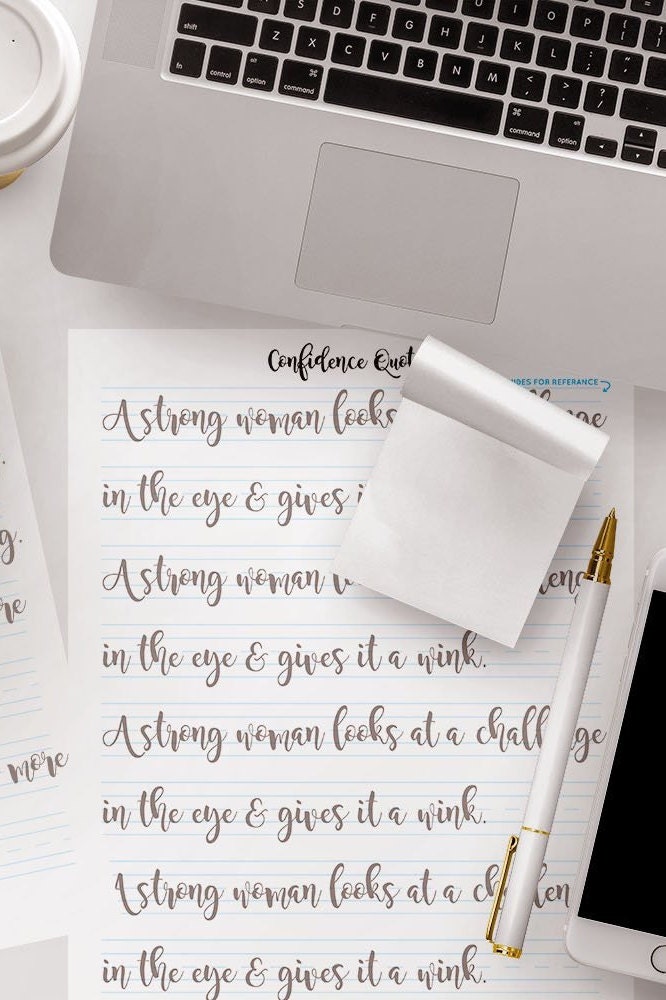 shift S D F G H J K L ; "
Z X C V B N M < , > . ? /
fn control option command command option
Confidence Quot
FOR REFERANCE
A strong woman looks
in the eye & gives
A strong woman
in the eye & gives it a wink.
A strong woman looks at a challenge
in the eye & gives it a wink.
A strong woman looks at a challen
in the eye & gives it a wink.
more